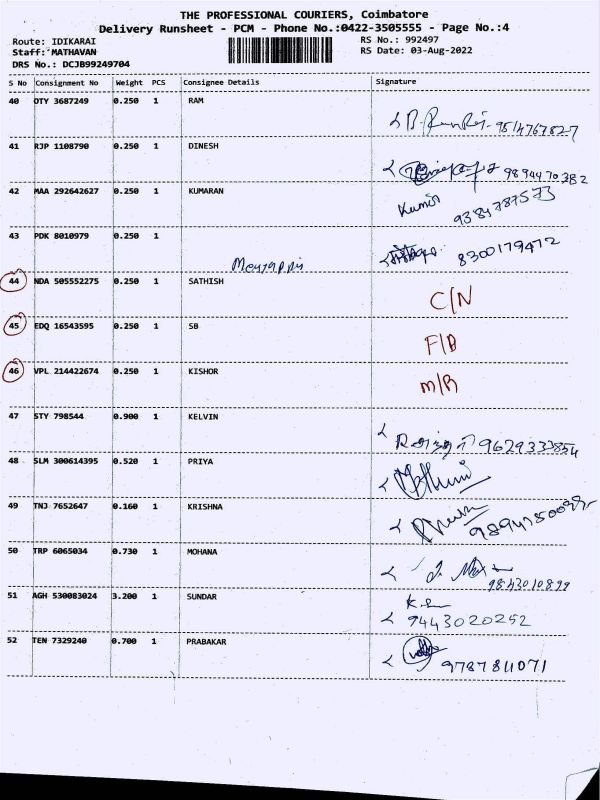 THE PROFESSIONAL COURIERS, Coimbatore
Delivery Runsheet - PCM - Phone No.:0422-3505555 - Page No.:4
Route: IDIKARAI
RS No.: 992497
Staff: MATHAVAN
RS Date: 03-Aug-2022
DRS No.: DCJB99249704
S No Consignment No Weight PCS Consignee Details Signature
40 OTY 3687249 0.250 1 RAM
9514767827
41 RJP 1108790 0.250 1 DINESH
9894470382
42 MAA 292642627 0.250 1 KUMARAN
Kumar
9384787573
43 PDK 8010979 0.250 1
8300179472
44 NDA 505552275 0.250 1 SATHISH
C/N
45 EDQ 16543595 0.250 1 SB
F/B
46 VPL 214422674 0.250 1 KISHOR
M/R
47 STY 798544 0.900 1 KELVIN
9629333854
48 SLM 300614395 0.520 1 PRIYA
49 TNJ 7652647 0.160 1 KRISHNA
50 TRP 6065034 0.730 1 MOHANA
9843010899
51 AGH 530083024 3.200 1 SUNDAR
9443020252
52 TEN 7329240 0.700 1 PRABAKAR
9787811071